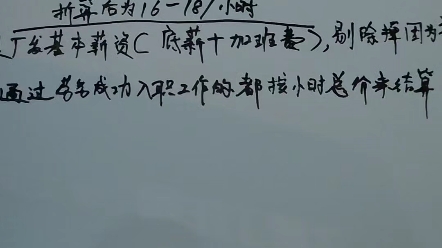 折算后为16-18/小时
厂发基本薪资(底薪+加班费),剔除掉因为
通过 成功入职工作的都按小时总价来结算